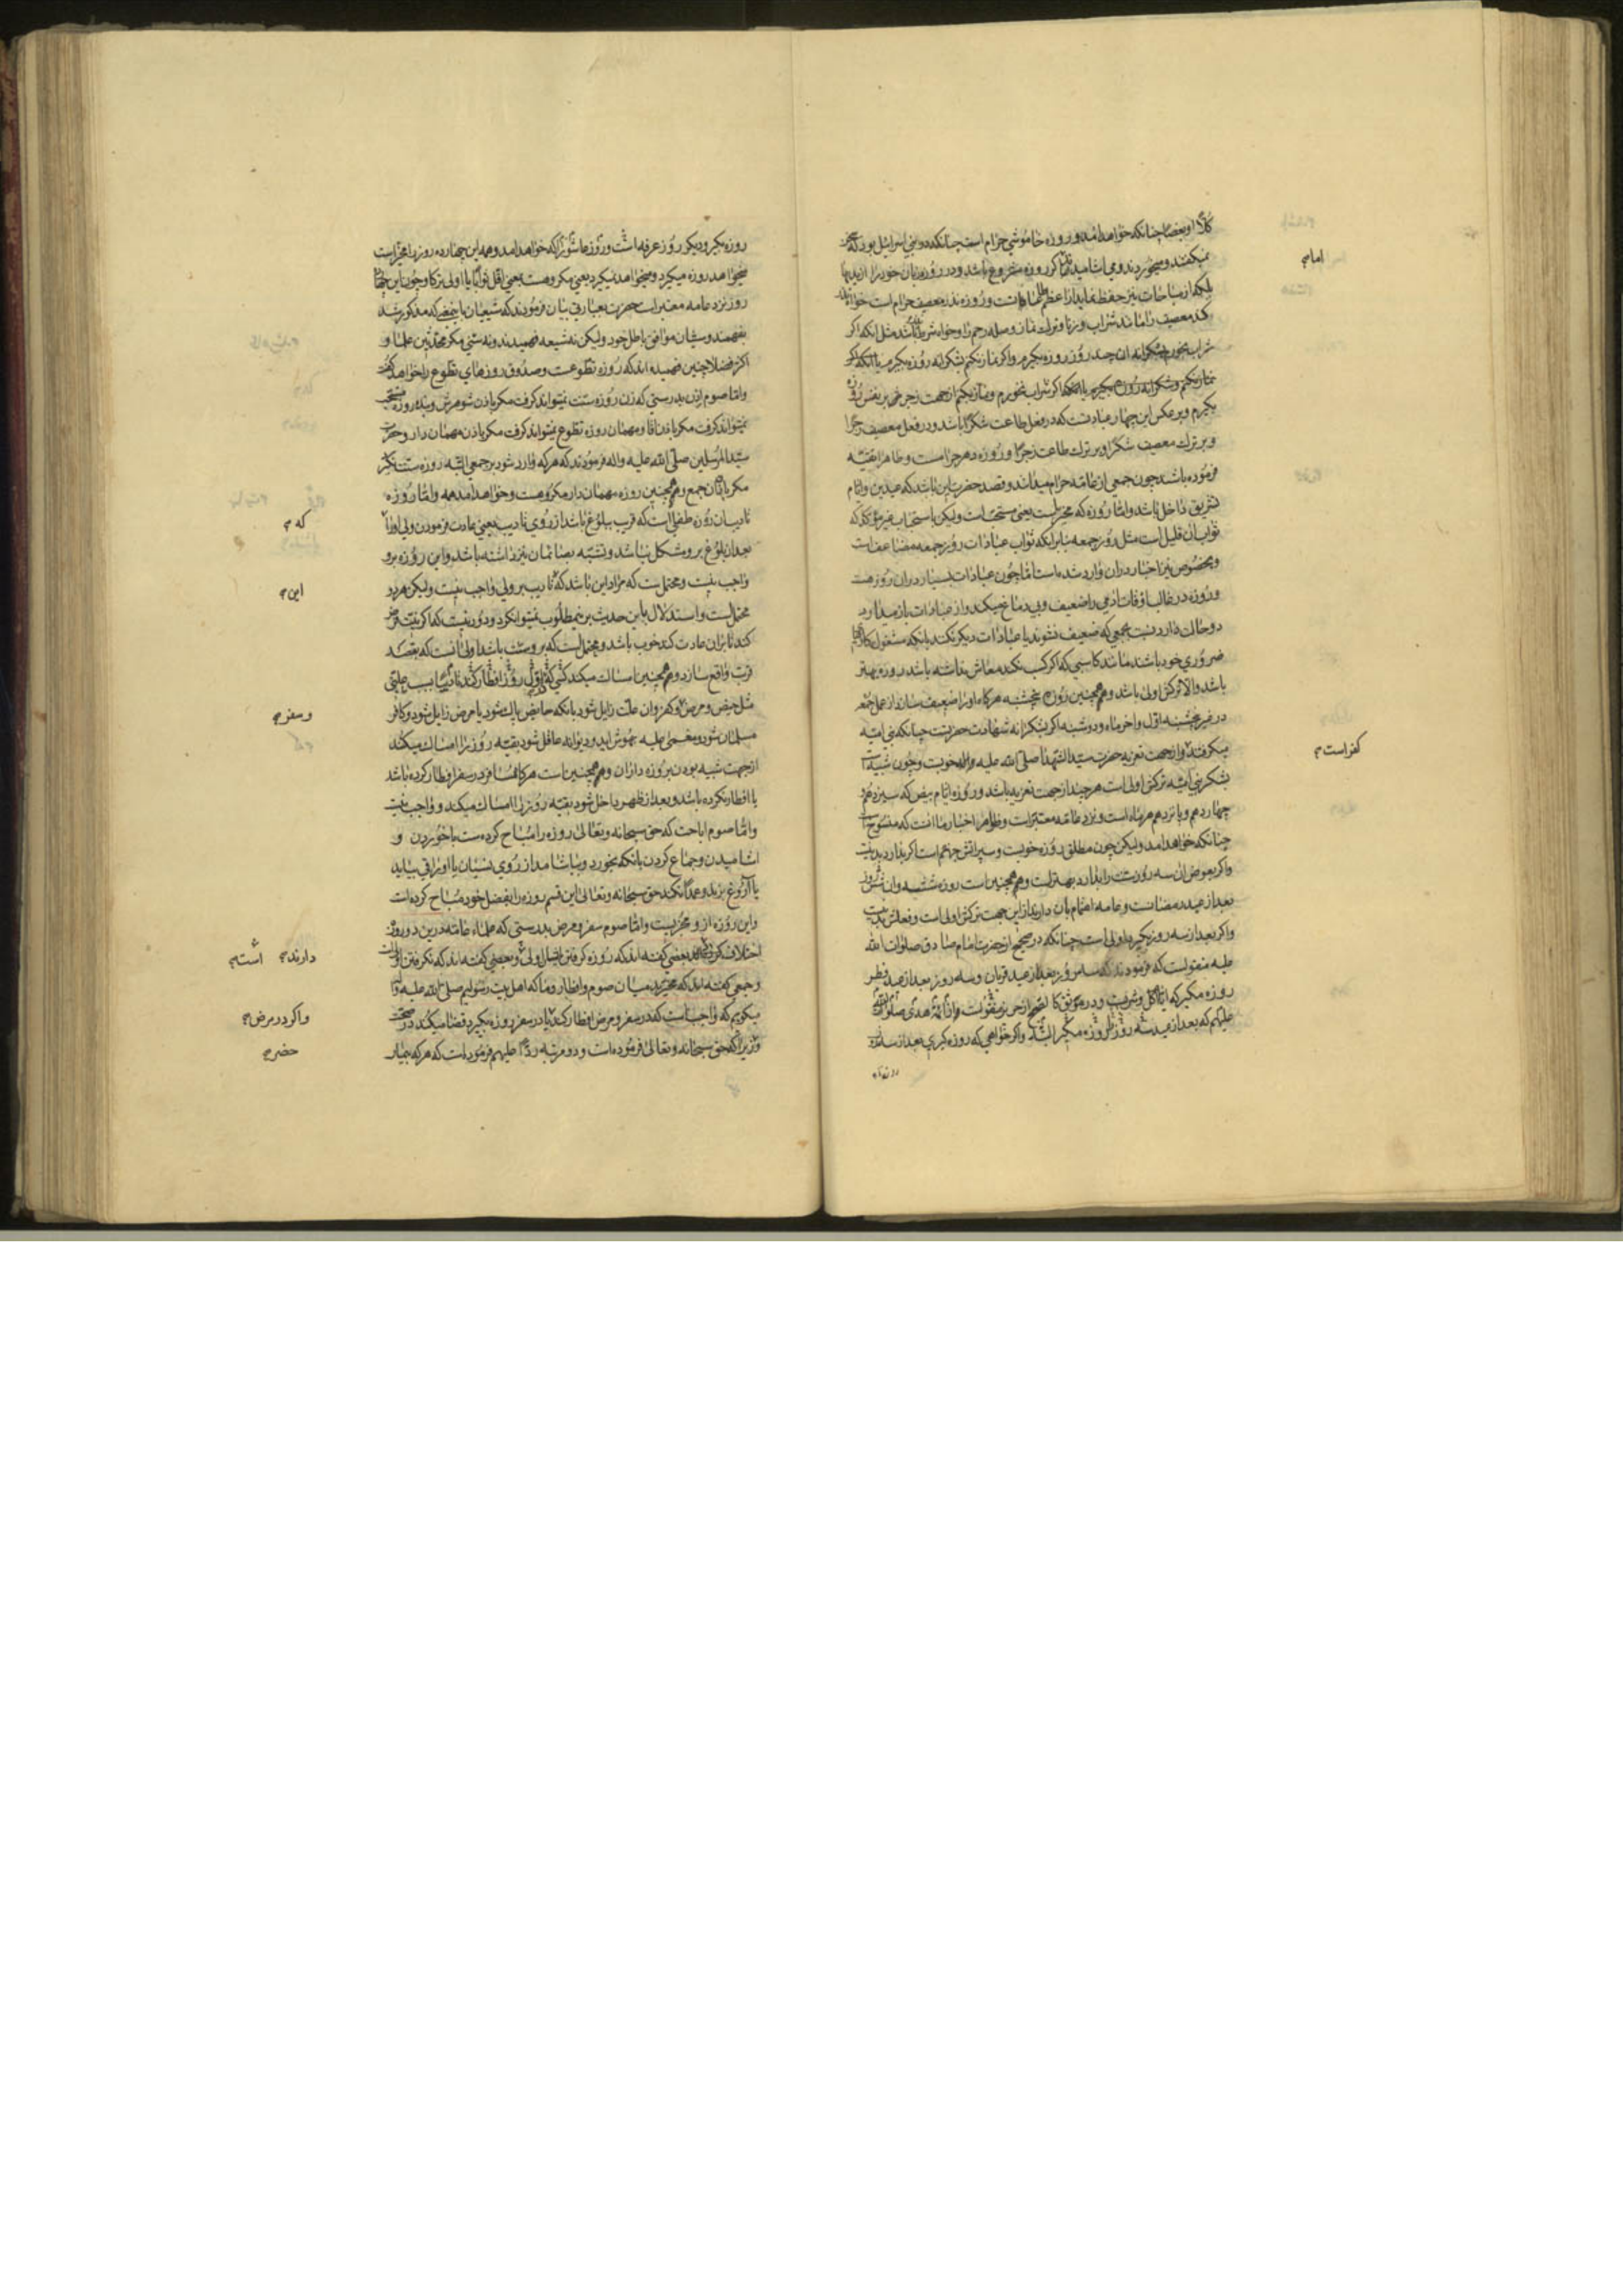 کلاًّ او بعضا چنانکه خواهد امد و روزه خاموشی حرام است چنانکه در بنی اسرائیل بود که سخن
نمیکفتند و میخوردند و می اشامیدند اکر روزه مشروع باشد و در روزه زبان خود را از بدیها
بلکه از مباحات نیز حفظ نماید از اعظم طاعات است و روزه نذر معصیت حرام است خواه نذر
کند معصیت را مانند شراب و زنا و ترك نماز و صله رحم را و خواه شرط باشد مثل انکه اکر
شراب بخورم بشکرانه ان چند روز روزه بکیرم و اکر نماز نکنم بشکرانه روزه بکیرم یا انکه اکر
نماز بکنم و شکرانه روزه بکیرم یا انکه اکر شراب نخورم و نماز بکنم از جهت زجر نفس روزه
بکیرم و برعکس این چهار عبادتست که در فعل طاعت شکرا باشد و در فعل معصیت زجرا
و بر ترك معصیت شکرا و بر ترك طاعت زجرا و روزه دهر حرامست و ظاهرا تقیّه
فرموده باشد چون جمعی از عامّه حرام میدانند و قصد حضرت این باشد که عیدین و ایّام
تشریق داخل باشد و امّا روزه که مخیر است یعنی مستحبّ است ولیکن استحباب غیر مؤکد که
ثواب ان قلیل است مثل روز جمعه بنابرانکه ثواب عبادات روز جمعه مضاعف است
و بخصوص نیز اخبار در ان وارد شده است امّا چون عبادات بسیار در ان روز هست
و روزه در غالب اوقات ادمی را ضعیف و بی دماغ میکند و از عبادات باز میدارد
دو حالت دارد نسبت بجمعی که ضعیف نشوند یا عبادات دیکر نکند بانکه مشغول کارهای
ضروری خود باشند مانند کاسبی که اکر کسب نکند معاش نداشته باشد روزه بهتر
باشد والّا ترکش اولی باشد و همچنین روزه پنجشنبه هرکاه او را ضعیف سازد از عمل جمعه
در غیر پنجشنبه اوّل و اخر ماه و دوشنبه اکر بشکرانه شهادت حضرتست چنانکه بنی امیّه
میکرفتند و از جهت تعزیه حضرت سیّد الشهدا صلّی الله علیه و اله خوبست و چون شبیه است
بشکر بنی امیّه ترکش اولی است هر چند از جهت تعزیه باشد و روزه ایّام بیض که سیزدهم
چهاردهم و پانزدهم هر ماه است و نزد عامّه معتبر است و ظواهر اخبار ما انست که منسوخ است
چنانکه خواهد امد ولیکن چون مطلق روزه خوبست و سپر اتش جهنم است اکر بدارد بد نیست
و اکر بعوض ان سه روز سنّت را بدارد بهتر است و همچنین است روزه ششه و ان شش روز
بعد از عید رمضانست و عامه اهتمام بان دارند از این جهت ترکش اولی است و فعلش بد نیست
و اکر بعد از سه روز بکیرد اولی است چنانکه در صحیح از حضرت امام صادق صلوات الله
علیه منقولست که فرمودند که سه روز بعد از عید قربان و سه روز بعد از عید فطر
روزه مکیر که ایّام اکل و شربست و در موثق کالصّحیح از حریز منقولست از ائمّه هدی صلوات الله
علیهم که بعد از عید سه روز روزه مکیر البتّه و اکر خواهی که روزه کیری بعد از سه
امام
کفر است
روزه بکیر و دیکر روز عرفه است و روز عاشورا که خواهد امد و همه این چهارده روز را مخیّر است
میخواهد روزه میکیرد و میخواهد نمیکیرد یعنی مکروهست یعنی اقل ثوابا یا اولی ترکا و چون این چهارده
روز نزد عامه معتبر است حضرت بعبارتی بیان فرمودند که شیعیان باین معنی که مذکور شد
بفهمند و سنیان موافق باطل خود ولیکن نه شیعه فهمیدند و نه سنّی مکر محدّثین علما و
اکثر فضلا چنین فهمیده اند که روزه تطوّعست و صدوق روزهای تطوّع را خواهد کفت
و امّا صوم اذن بدرستی که زن روزه سنّت نمیتواند کرفت مکر باذن شوهرش و بنده روزه مستحب
نمیتواند کرفت مکر باذن اقا و مهمان روزه تطوع نمیتواند کرفت مکر باذن مهمان دار و حضرت
سیّد المرسلین صلّی الله علیه و اله فرمودند که هرکه وارد شود بر جمعی البتّه روزه سنّت نکیرد
مکر باذن ان جمع و همچنین روزه مهمان دار مکروهست و خواهد امد همه و امّا روزه
تادیب ان روزه طفلی است که قریب ببلوغ باشد از روی تادیب یعنی عادت فرمودن ولی او را تا
بعد از بلوغ برو مشکل نباشد و تشبّه بصائمان نیز داشته باشد و این روزه برو
واجب نیست و محتملست که مراد این باشد که تادیب بر ولی واجب نیست ولیکن هر دو
محتملست و استدلال باین حدیث بر نمیطلوب نمیتوان کرد و دور نیست که اکر نیّت فرض
کند تا بران عادت کند خوب باشد و محتملست که برو سنّت باشد و اولی انست که بقصد
قربت واقع سازد و همچنین امساك میکند کسی که اوّل روز افطار کند تادیبا بسبب علّتی
مثل حیض و مرض و کفر و ان علّت زایل شود بانکه حایض پاك شود یا مرض زایل شود و کافر
مسلمان شود و مغمی علیه بهوش اید و دیوانه عاقل شود بقیّه روز را امساك میکند
از جهت شبیه بودن بروزه داران و همچنین است هرکاه مسافر در سفر افطار کرده باشد
یا افطار نکرده باشد و بعد از ظهر داخل شود بقیّه روز را امساك میکند و واجب نیست
و امّا صوم اباحت که حق سبحانه و تعالی روزه را مباح کرده ست با خوردن و
اشامیدن و جماع کردن بانکه بخورد و بیاشامد از روی نسیان یا او را قی بیاید
یا آروغ بزند و عمدا نکند حق سبحانه و تعالی این قسم روزه را بفضل خود مباح کرده است
و این روزه ازو مجزیست و امّا صوم سفر و مرض بدرستی که علماء عامّه درین دو روزه
اختلاف کرده اند بعضی کفته اند که روزه کرفتن اولی است و بعضی کفته اند که نکرفتن اولی است
و جمعی کفته اند که مخیر ند میان صوم و افطار و ما که اهل بیت رسولیم صلی الله علیه و اله
میکوییم که واجب است که در سفر و مرض افطار کند یا در سفر روزه بکیرد قضا میکند در صحت
زیرا که حق سبحانه و تعالی فرموده است و دو مرتبه ردّا علیهم فرموده است که هرکه بیمار
که
این
و سفر
دارند است
و اکر در مرض
حضر